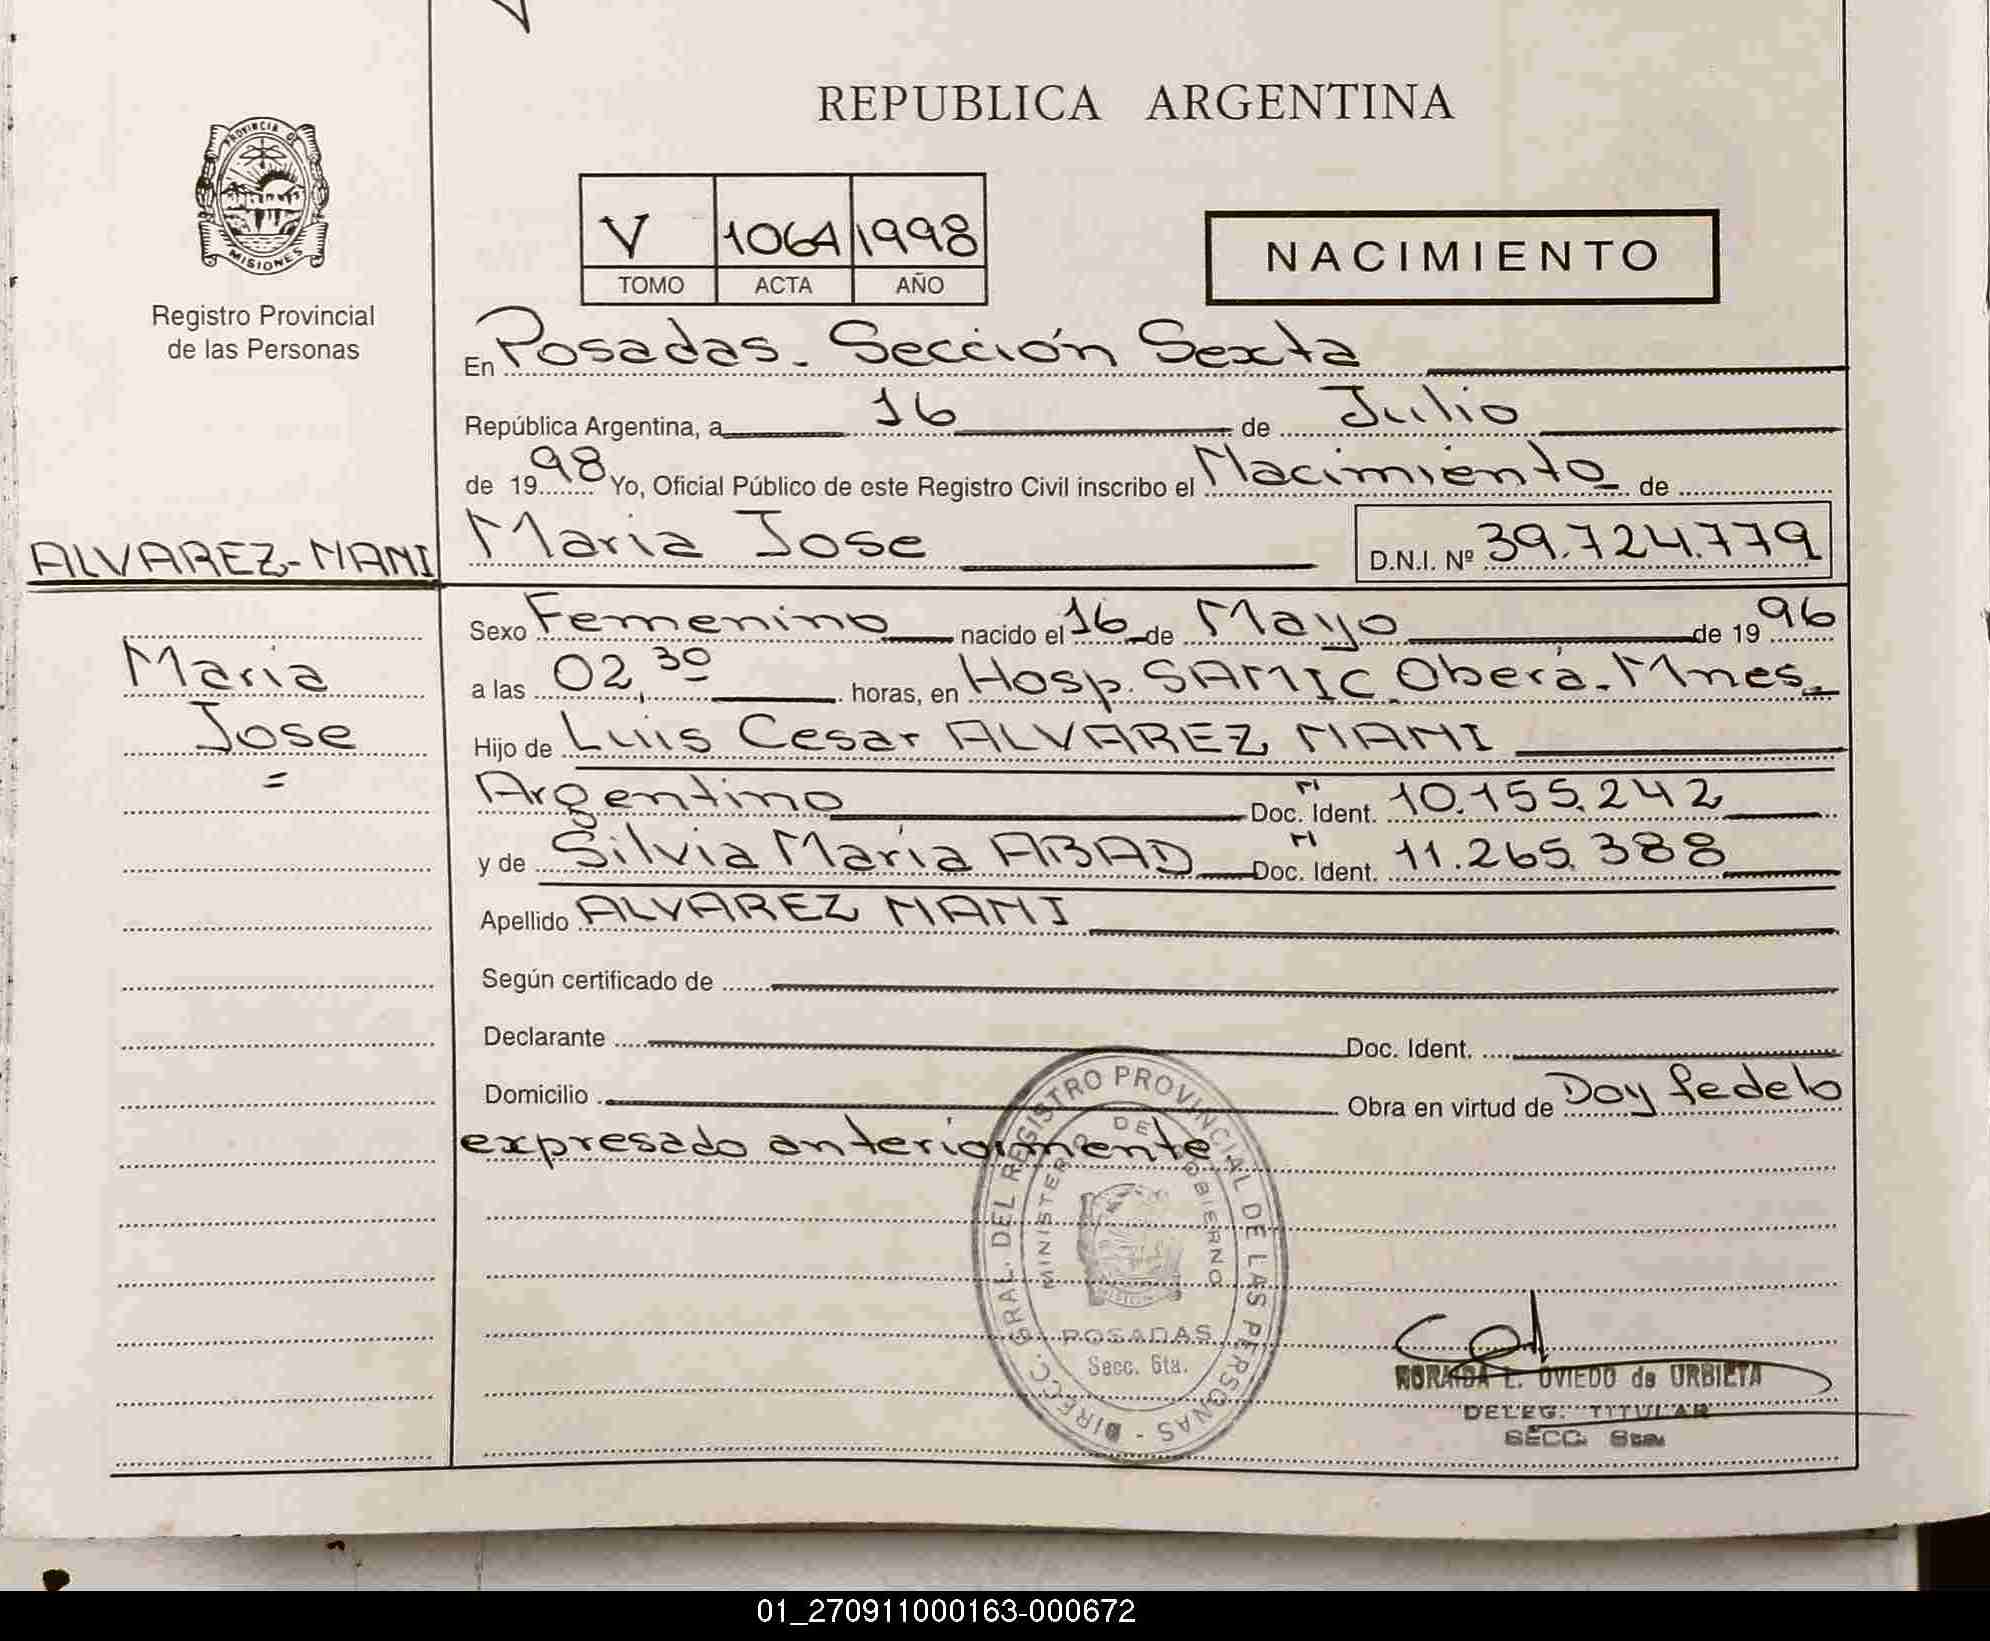 REPUBLICA ARGENTINA
PROVINCIA DE
MISIONES
Registro Provincial
de las Personas
V 1064 1998
TOMO ACTA AÑO
NACIMIENTO
En Posadas. Sección Sexta
República Argentina, a 16 de Julio
de 1998 Yo, Oficial Público de este Registro Civil inscribo el Nacimiento de
Maria Jose D.N.I. Nº 39.724.779
ALVAREZ-NANI
Maria
Jose
=
Sexo Femenino nacido el 16 de Mayo de 1996
a las 02,30 horas, en Hosp. SAMIC Oberá. Mnes.
Hijo de Luis Cesar ALVAREZ NANI
Argentino Doc. Ident. 10.155.242
y de Silvia María ABAD Doc. Ident. 11.265.388
Apellido ALVAREZ NANI
Según certificado de
Declarante Doc. Ident.
Domicilio Obra en virtud de Doy fe de lo
expresado anteriormente.
DIRECC. GRAL. DEL REGISTRO PROVINCIAL DE LAS PERSONAS -
MINISTERIO DE GOBIERNO
MISIONES
POSADAS
Secc. 6ta.
L. OVIEDO de URBIETA
DELEG. TITULAR
SECC.
01_270911000163-000672